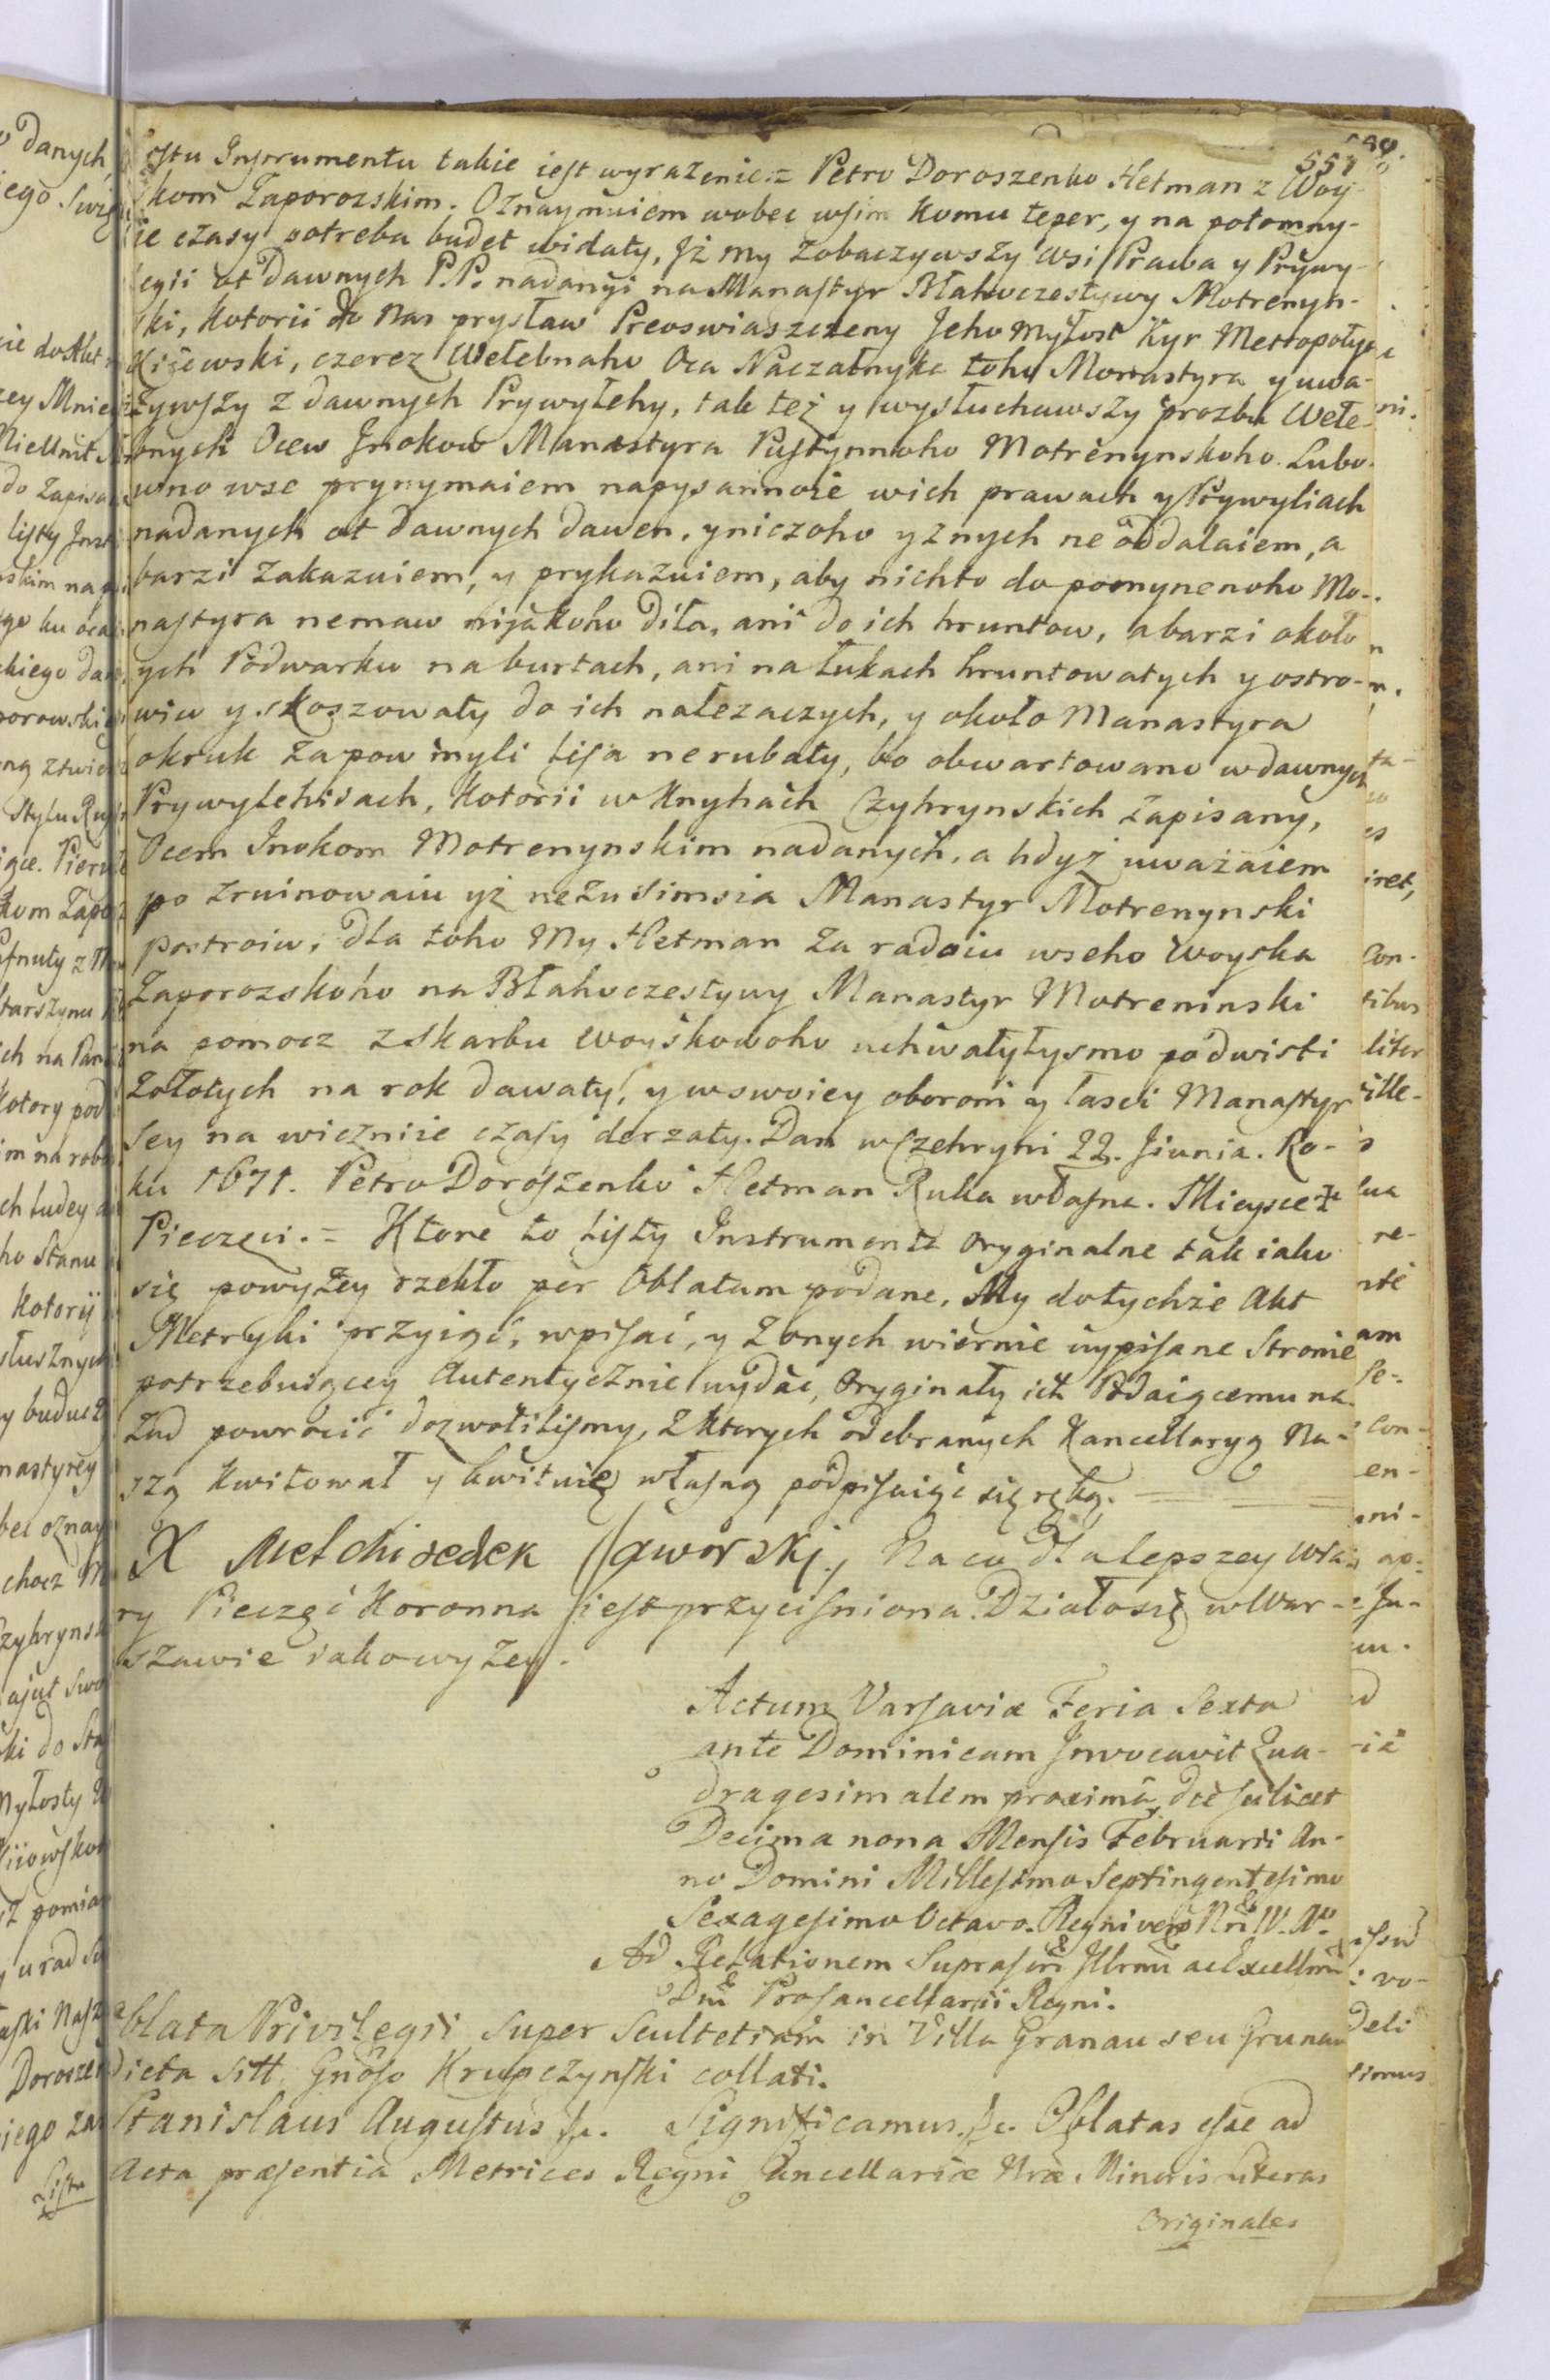 557
Listu Instrumentu takie iest wyrazenie = Petro Doroszenko Hetman z Woy-
skom Zaporozskim. Oznaymuiem wobec wsim komu teper, y na potomny-
ie czasy potreba budet widaty, Jż my zobaczywszy wsi Prawa y Prywy-
legii ot dawnych P.P. nadanyi na Manastyr Błahoczestywy Motrenyn-
ski, kotorii do Nas prysław Preoswiaszczeny Jeho Myłost Kyr Metropolyt
Kijewski, czerez Wełebnaho Oca Naczałnyka toho Monastyra y uwa-
żywszy z dawnych Prywyłehy, tak też y wysłuchawszy prozbu Wełe-
bnych Ocew Jnokow Manastyra Pustynnoho Motrenynskoho. Lubo-
wno wse prynymaiem napysannoie wich prawach y Prywyliach
nadanych ot dawnych dawen, yniczoho yznych ne oddalaiem, a
barzi zakazuiem, y prykazuiem, aby nichto do pomynenoho Mo-
nastyra nemaw nijakoho diła, ani do ich hruntow, abarzi około
ych Podwarku na burtach, ani na łukach hruntowatych y ostro-
wiw y skoszowaty do ich nalezaczych, y około Manastyra
okruk za pow myli lisa nerubaty, bo obwartowano wdawnych
Prywylehisach, kotorii w Knyhach Czyhrynskich zapisany,
Ocem Jnokom Motrenynskim nadanych, a hdyż uważaiem
po zruinowaiu yż nezusimsia Manastyr Motrenynski
postroiw, dla toho My Hetman za radoiu wseho Woyska
Zaporozskoho na Błahoczestywy Manastyr Motreninski
na pomocz z Skarbu woyskowoho uchwałyłysmo podwisti
Zołotych na rok dawaty, y wswoiey oboroni y łasci Manastyr
sey na wicznije czasy derzaty. Dan w Czehryni 22. Jiunia. Ro-
ku 1671. Petro Doroszenko Hetman Ruka własna. Mieysce
Pieczęci. = Ktore to Listy Instrumenta oryginalne tak iako
się powyżey rzekło per Oblatam podane, My dotychże Akt
Metryki przyiąć, wpisać, y z onych wiernie wypisane Stronie
potrzebuiącey Autentycznie wydać, Oryginały ich Podaiącemu na-
zad powrocić dozwoliliśmy, z ktorych odebranych Kancellaryą Na-
szą kwitował y kwituie własną podpisuiąc się ręką.
X Melchisedek Jaworskj, Na co dla lepszey wia-
ry Pieczęć Koronna iest przycisniona. Działo się w War-
szawie iako wyżey.
Actum Varsaviæ Feria Sexta
ante Dominicam Jnvocavit Qua-
dragesimalem proximâ, die scilicet
Decima nona Mensis Februarii An-
no Domini Millesimo Septingentesimo
Sexagesimo Octavo. Regni vero Nri IV. Ao.
Ad Relationem Suprascri Jllrmi ac Excellmi
Dni Procancellarii Regni.
Oblata Privilegii super Scultetiam in Villa Granau seu Grunau
dicta sitt. Gnoso Krupczynski collati.
Stanislaus Augustus &c. Significamus &c. Oblatas esse ad
Acta præsentia Metrices Regni Cancellariæ Nræ Minoris Literas
Originales